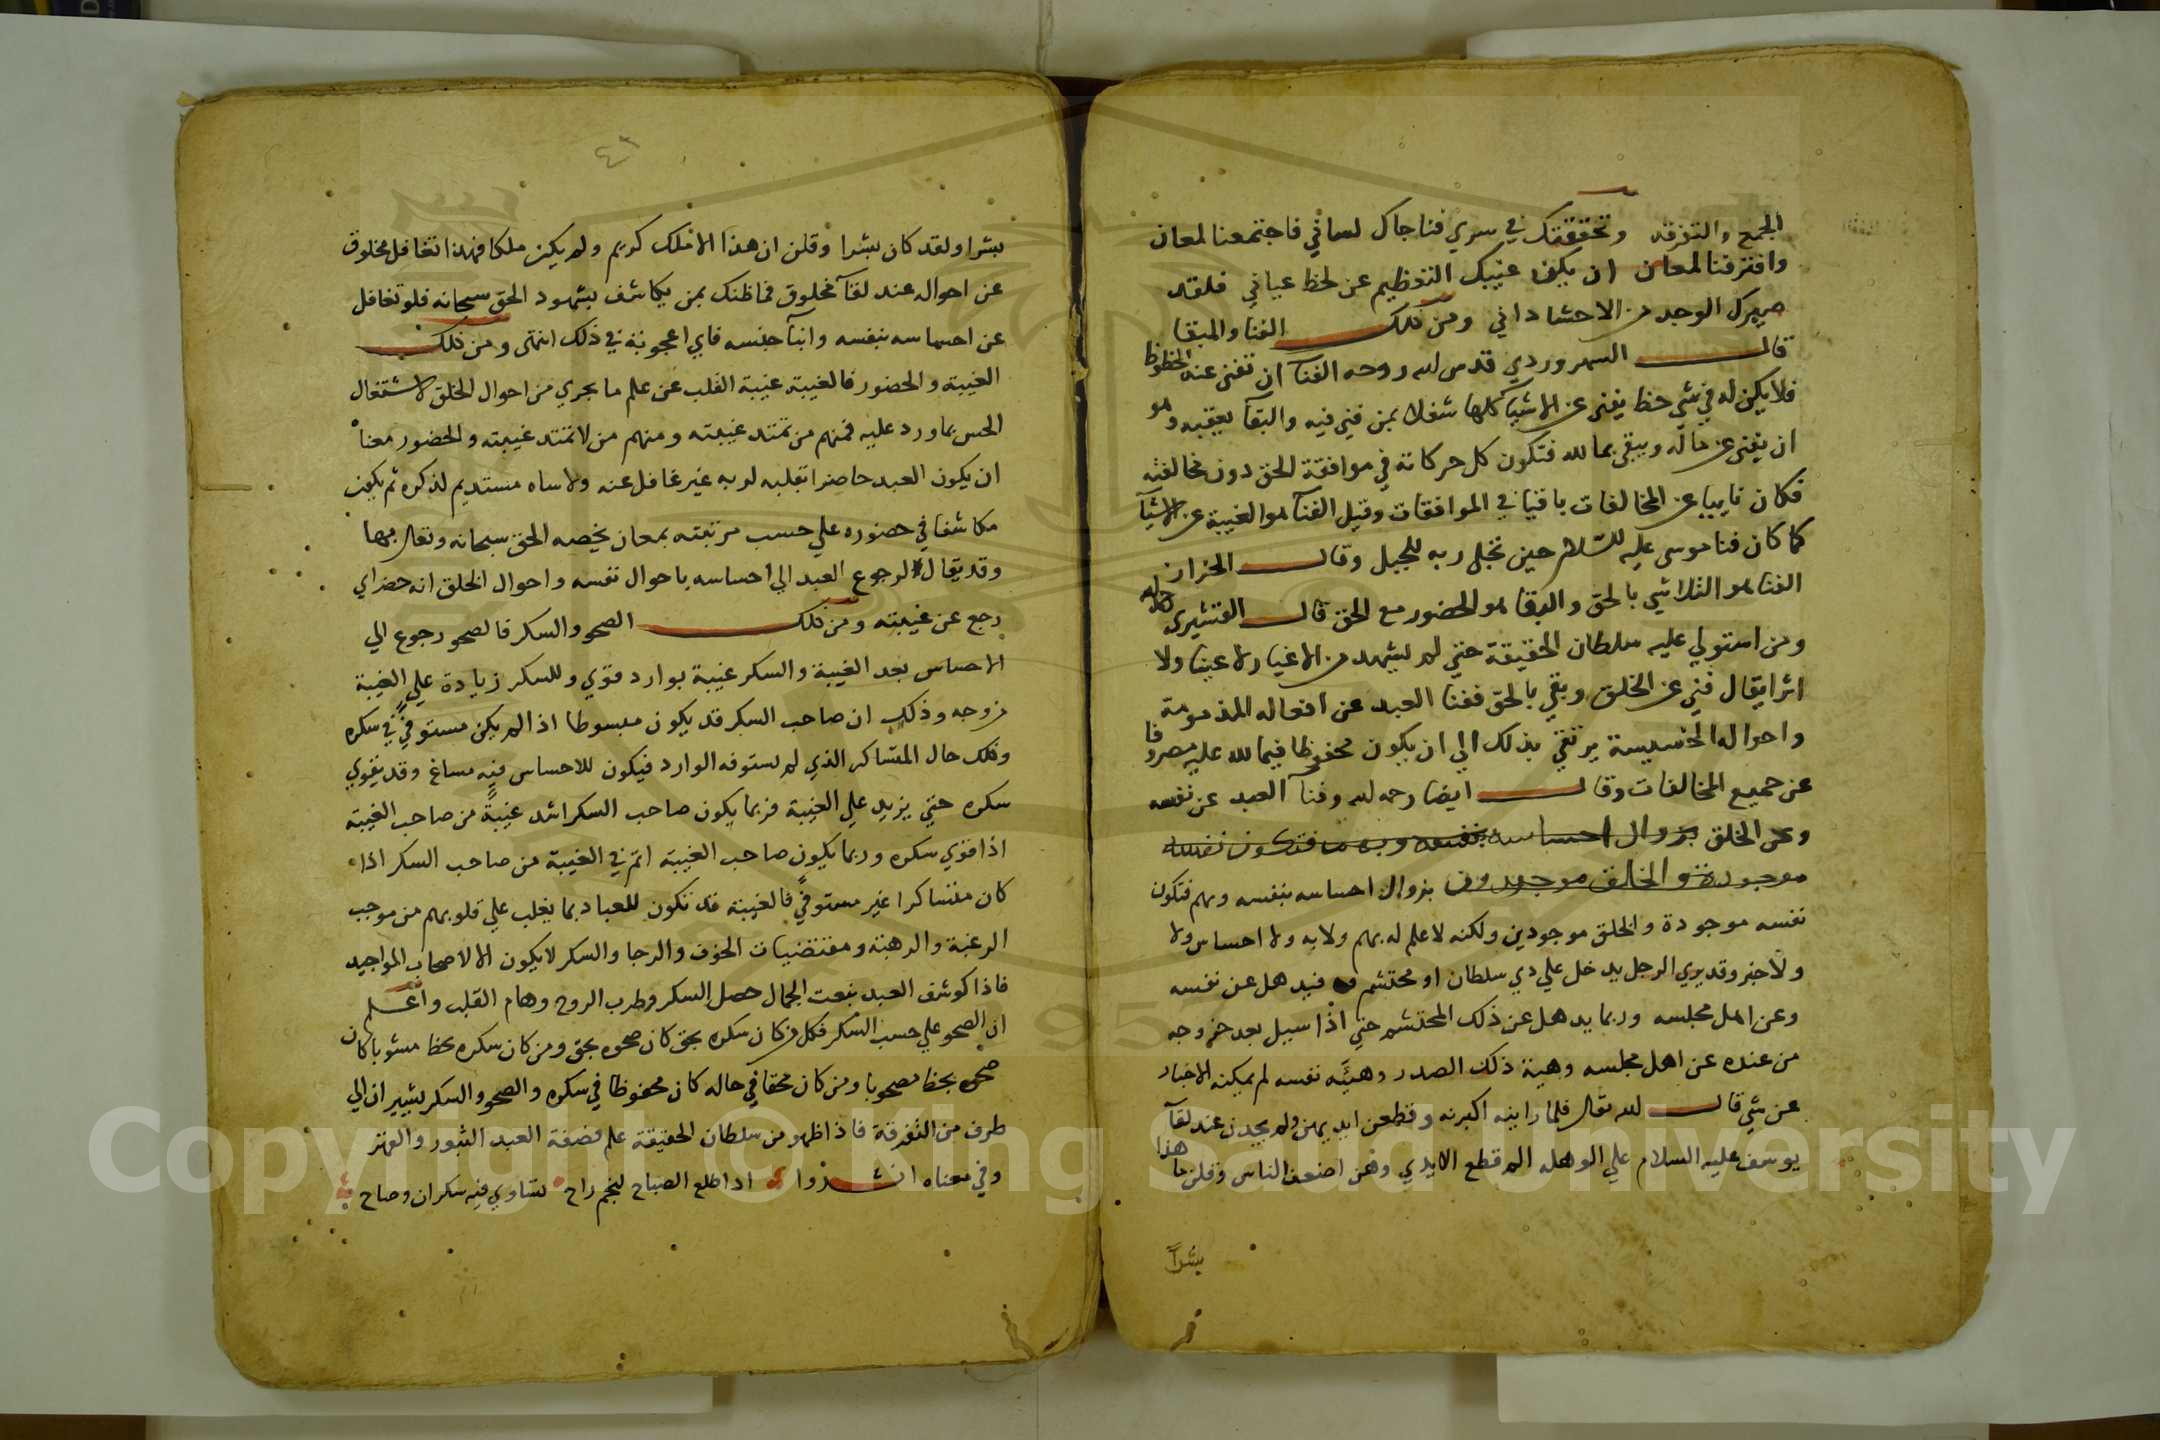 الجمع والتفرقه وتحققتك في سري فناجاك لساني فاجتمعنا لمعان
وافترقنا لمعان ان يكن غيبك التعظيم عن لحظ عياني فلقد
صيرك الوجد من الاحشا داني ومن ذلك الفنا والبقا
قال السهروردي قدس الله روحه الفنا ان تفنى عنه الحظوظ
فلا يكن له في شي حظ يفنى عن الاشيآ كلها شغلا بمن فني فيه والبقآ يعقبه وهو
ان يفنى عن ماله ويبقى بما لله فتكون كل حركاته في موافقة الحق دون مخالفته
فكان فانيا عن المخالفات باقيا في الموافقات وقيل الفنآ هو الغيبة عن الاشيآ
كما كان فنا موسى عليه السلام حين تجلى ربه للجبل وقال الخراز
الفنا هو التلاشي بالحق والبقا هو الحضور مع الحق قال القشيري رحمه الله
ومن استولي عليه سلطان الحقيقة حتي لم يشهد من الاغيار لا عينا ولا
اثرا يقال فني عن الخلق وبقي بالحق ففنا العبد عن افعاله المذمومة
واحواله الخسيسة يرتقي بذلك الي ان يكون محفوظا فيما لله عليه مصروفا
عن جميع المخالفات وقال ايضا رحمه الله وفنآ العبد عن نفسه
وعن الخلق بزوال احساسه بنفسه وبهم فتكون نفسه
موجودة والخلق موجودون بزوال احساسه بنفسه وبهم فتكون
نفسه موجودة والخلق موجودين ولكنه لا علم له بهم ولا به ولا احساس ولا
ولا خبر وقد يري الرجل يدخل علي ذي سلطان او محتشم فيذهل عن نفسه
وعن اهل مجلسه وربما يذهل عن ذلك المحتشم حتي اذا سيل بعد خروجه
من عنده عن اهل مجلسه وهيئة ذلك الصدر وهيئه نفسه لم يمكنه الاخبار
عن شي قال الله تعالى فلما راينه اكبرنه وقطعن ايديهن ولم يجدن عند لقآ
يوسف عليه السلام علي الوهلة الم قطع الايدي وهن اضعف الناس وقلن ما هذا
بشرا
٤٢
بشرا ولقد كان بشرا وقلن ان هذا الا ملك كريم ولم يكن ملكا فهذا تغافل مخلوق
عن احواله عند لقآ مخلوق فما ظنك بمن يكاشف بشهود الحق سبحانه فلو تغافل
عن احساسه بنفسه وابنآ جنسه فاي اعجوبة في ذلك انتهى ومن ذلك
الغيبة والحضور فالغيبة غيبة القلب عن علم ما يجري من احوال الخلق لاشتغال
الحس بما ورد عليه فمنهم من تمتد غيبته ومنهم من لا تمتد غيبته والحضور معناه
ان يكون العبد حاضرا بقلبه لربه غير غافل عنه ولا ساه مستديم لذكره ثم يكون
مكاشفا في حضوره علي حسب مرتبته بمعان يخصه الحق سبحانه وتعالى بها
وقد يقال لرجوع العبد الي احساسه باحوال نفسه واحوال الخلق انه حضر اي
رجع عن غيبته ومن ذلك الصحو والسكر فالصحو رجوع الي
الاحساس بعد الغيبة والسكر غيبة بوارد قوي وللسكر زيادة علي الغيبة
من وجه وذلك ان صاحب السكر قد يكون مبسوطا اذا لم يكن مستوفيً في سكره
وتلك حال المتساكر الذي لم يستوفه الوارد فيكون للاحساس فيه مساغ وقد يقوي
سكره حتي يزيد علي الغيبة فربما يكون صاحب السكر اشد غيبةً من صاحب الغيبة
اذا قوي سكره وربما يكون صاحب الغيبة اتم في الغيبة من صاحب السكر اذا
كان متساكرا غير مستوفيً فالغيبة قد تكون للعباد بما يغلب علي قلوبهم من موجب
الرغبة والرهبة ومقتضيات الخوف والرجا والسكر لا يكون الا لاصحاب المواجيد
فاذا كوشف العبد بنعت الجمال حصل السكر وطرب الروح وهام القلب واعلم
ان الصحو علي حسب السكر فكل من كان سكره بحق كان صحوه بحق ومن كان سكره بحظ مشوبا كان
صحوه بحظ مصحوبا ومن كان محقا في حاله كان محفوظا في سكره والصحو والسكر يشيران الي
طرف من التفرقة فاذا ظهر من سلطان الحقيقة علم فصفة العبد الثبور والقهر
وفي معناه انشدوا اذا طلع الصباح لنجم راح تساوي فيه سكران وصاح
Copyright © King Saud University